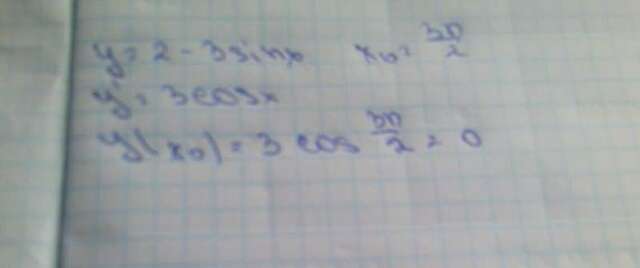 y = 2 - 3 sin x x₀ = 3π/2
y' = 3cosx
y'(x₀) = 3 cos 3π/2 = 0